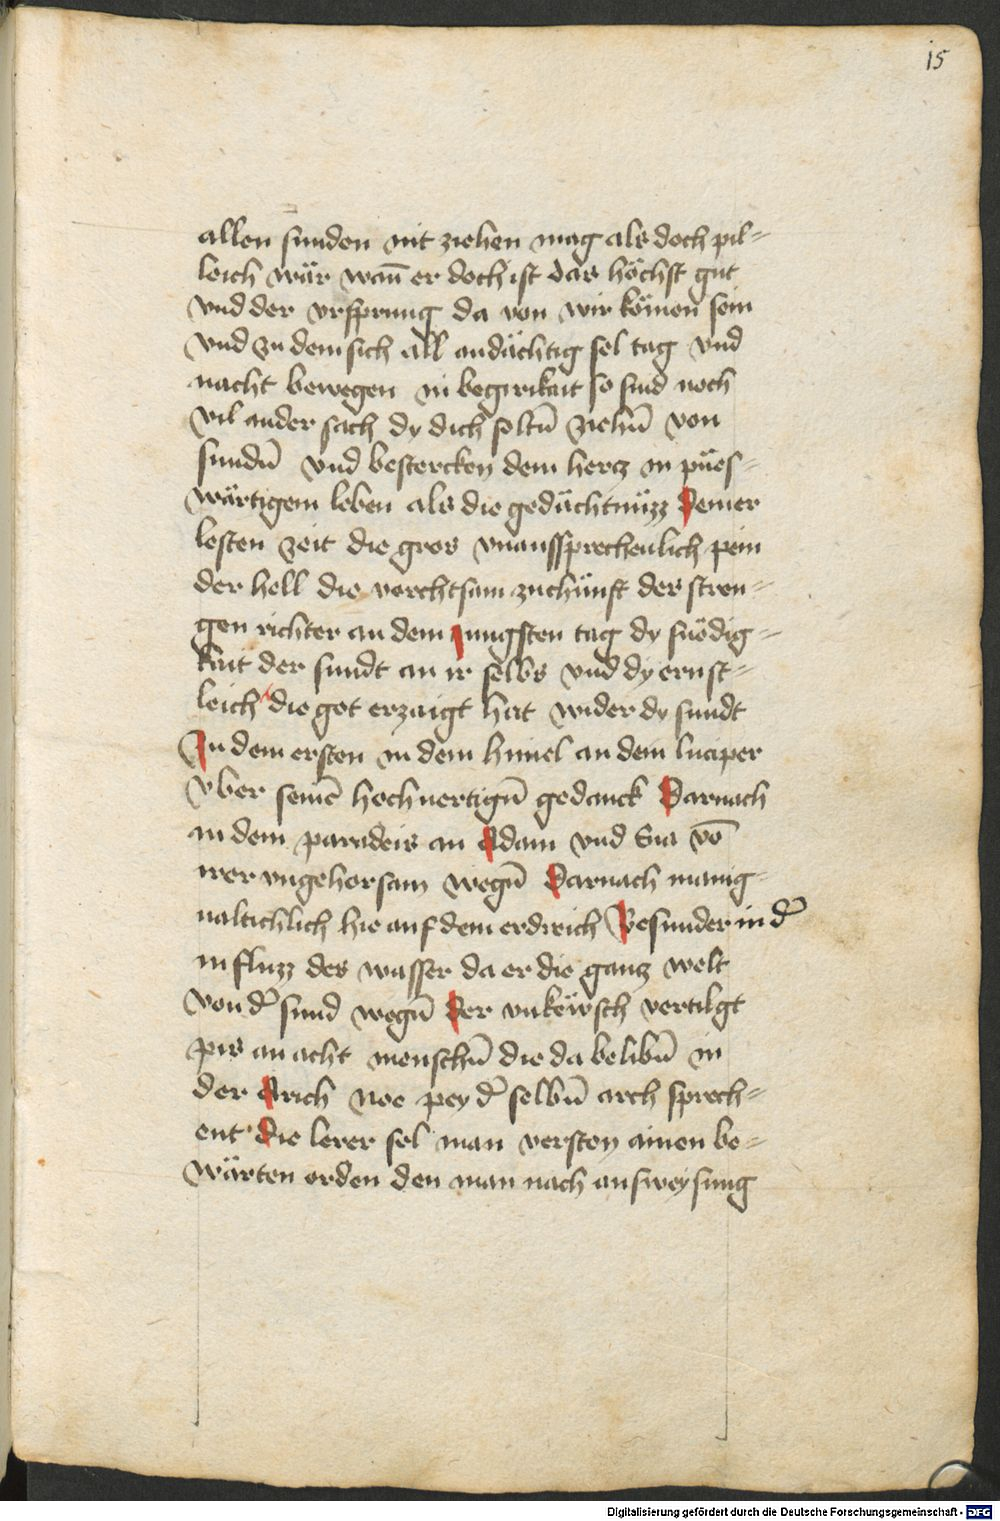 15
allen sunden nit ziehen mag als doch pil=
leich wär wañ er doch ist das höchst gut
vnd der vrsprung da von wir kömen sein
vnd zu dem sich all andächtig sel tag vnd
nacht bewegen in begirikait so sind noch
vil ander sach dy dich soltn̄ ziehn̄ von
sundn̄ vnd bestercken dem hercz in pües=
wärtigem leben als die gedächtnüzz deiner
lesten zeit die gros vnaussprechenlich pein
der hell die vorchtsam zuchünft des stren=
gen richter an dem jungsten tag dy snödig=
kait der sundt an ir selbs vnd dy ernst=
leich die got erzaigt hat wider dy sundt
In dem ersten in dem himel an dem luciper
vber seinē hochuertign̄ gedanck Darnach
in dem paradeis an Adam vnd Eua vō
irer vngehorsam wegn̄ Darnach manig=
ualtichlich hie auf dem erdreich Besunder in d̄
influzz des wasser da er die gancz welt
von d̄ sund wegn̄ der vnkewsch vertilgt
pis an acht menschn̄ die da belibn̄ in
der Arich noe pey d̄ selbn̄ arch sprech=
ent die lerer sol man versten ainen be=
wärten orden den man nach ausweysung
Digitalisierung gefördert durch die Deutsche Forschungsgemeinschaft - DFG